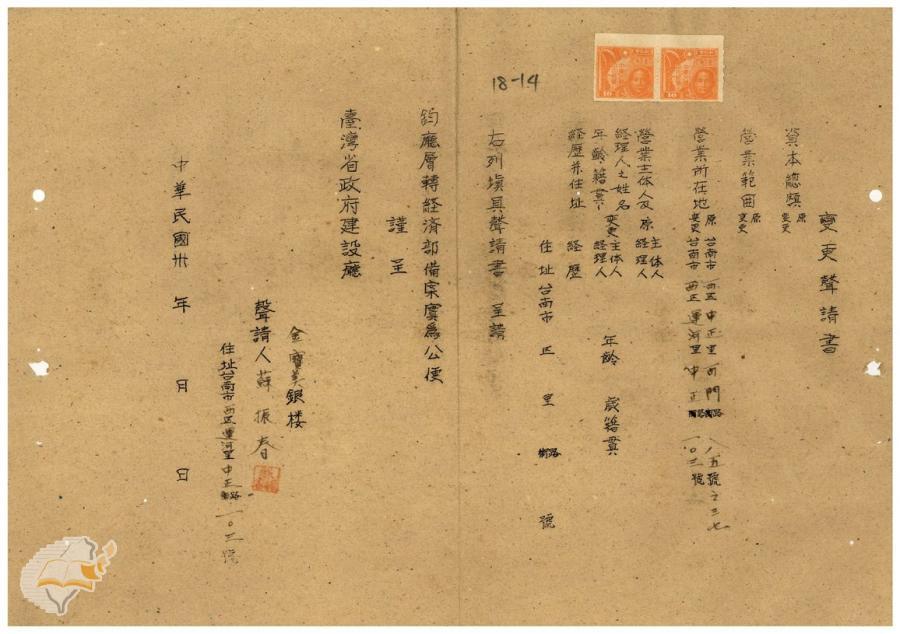 變更聲請書
資本總額 原
變更
營業範圍 原
變更
營業所在地 原 台南市 西区 中正里 西門 街路 一八五號之三七
變更 台南市 西区 運河里 中正 街路 一〇三號
營業主体人及 原 主体人
經理人
經理人之姓名
年齡籍貫 變更 主体人
經理人 年齡 歲籍貫
經歷并住址 經歷
住址 台南市 区 里 街路 號
右列填具聲請書 呈請
18-14
鈞廳層轉經済部備案實為公便
謹呈
臺灣省政府建設廳
金寶美銀楼
聲請人 蘇振春
住址台南市西区運河里中正街路一〇三號
中華民國卅 年 月 日